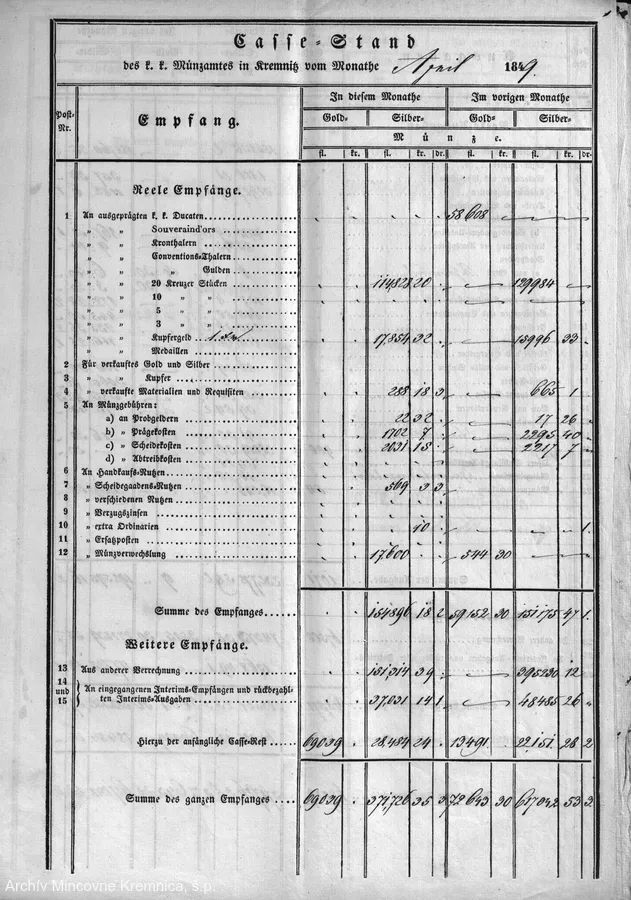 Casse-Stand
des k. k. Münzamtes in Kremnitz vom Monathe April 1849.
Post-Nr.
Empfang.
In diesem Monathe
Im vorigen Monathe
Gold-
Silber-
Gold-
Silber-
Münze.
fl. kr. fl. kr. dr. fl. kr. fl. kr. dr.
Reele Empfänge.
1 An ausgeprägten k. k. Ducaten 58608
„ „ Souveraind'ors
„ „ Kronthalern
„ „ Conventions-Thalern
„ „ „ Gulden
„ „ 20 Kreuzer Stücken 114,823 20 129984
„ „ 10 „ „
„ „ 5 „ „
„ „ 3 „ „
„ „ Kupfergeld 17,854 32 15996 33
„ „ Medaillen
2 Für verkauftes Gold und Silber
3 „ „ Kupfer
4 „ verkaufte Materialien und Requisiten 288 18 3 665 1
5 An Münzgebühren:
a) an Probgeldern 22 32 17 26
b) „ Prägekosten 1702 7 2295 40
c) „ Scheidekosten 2031 18 2217 7
d) „ Abtreibkosten
6 An Handkaufs-Nutzen
7 „ Scheidegaadens-Nutzen 569 3 3
8 „ verschiedenen Nutzen
9 „ Verzugszinsen
10 „ extra Ordinarien 10 1
11 „ Ersatzposten
12 „ Münzverwechslung 17,600 544 30
Summe des Empfanges 154896 18 2 59152 30 151175 47 1
Weitere Empfänge.
13 Aus anderer Verrechnung 151,314 39 395230 12
14 und 15 } An eingegangenen Interims-Empfängen und rückbezahl-
ten Interims-Ausgaben 37,031 14 1 48485 26
Hierzu der anfängliche Casse-Rest 69039 28,484 24 13491 22151 28 2
Summe des ganzen Empfanges 69039 371,726 35 3 72643 30 617042 53 3
Archív Mincovne Kremnica, š.p.